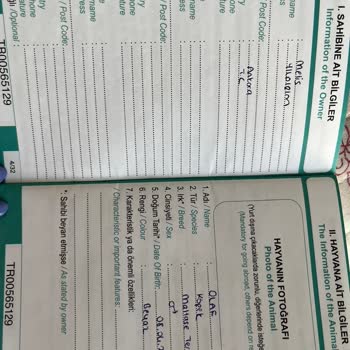 I. SAHİBİNE AİT BİLGİLER
Information of the Owner
name
Melis
YILDIRIM
name
ress
/ Post Code:
Ankara
try
phone
nature
Optional
name
ress
/ Post Code:
try
phone
nature
TR00565129
4/32
II. HAYVANA AİT BİLGİLER
The Information of the Anima
HAYVANIN FOTOĞRAFI
Photo of the Animal
(Yurt dışına çıkacaklarda zorunlu, diğerlerinde isteğe
(Mandatory for going abroad, others depend on re
1. Adı / Name : OLAF
2. Tür / Species : Köpek
3. Irk* / Breed : Maltese Te
4. Cinsiyeti / Sex : ♂
5. Doğum Tarihi* / Date Of Birth:
6. Rengi / Colour : Beyaz
7. Karakteristik ya da önemli özellikleri:
/ Characteristic or important features:
*: Sahibi beyan etmişse / As stated by owner
TR00565129